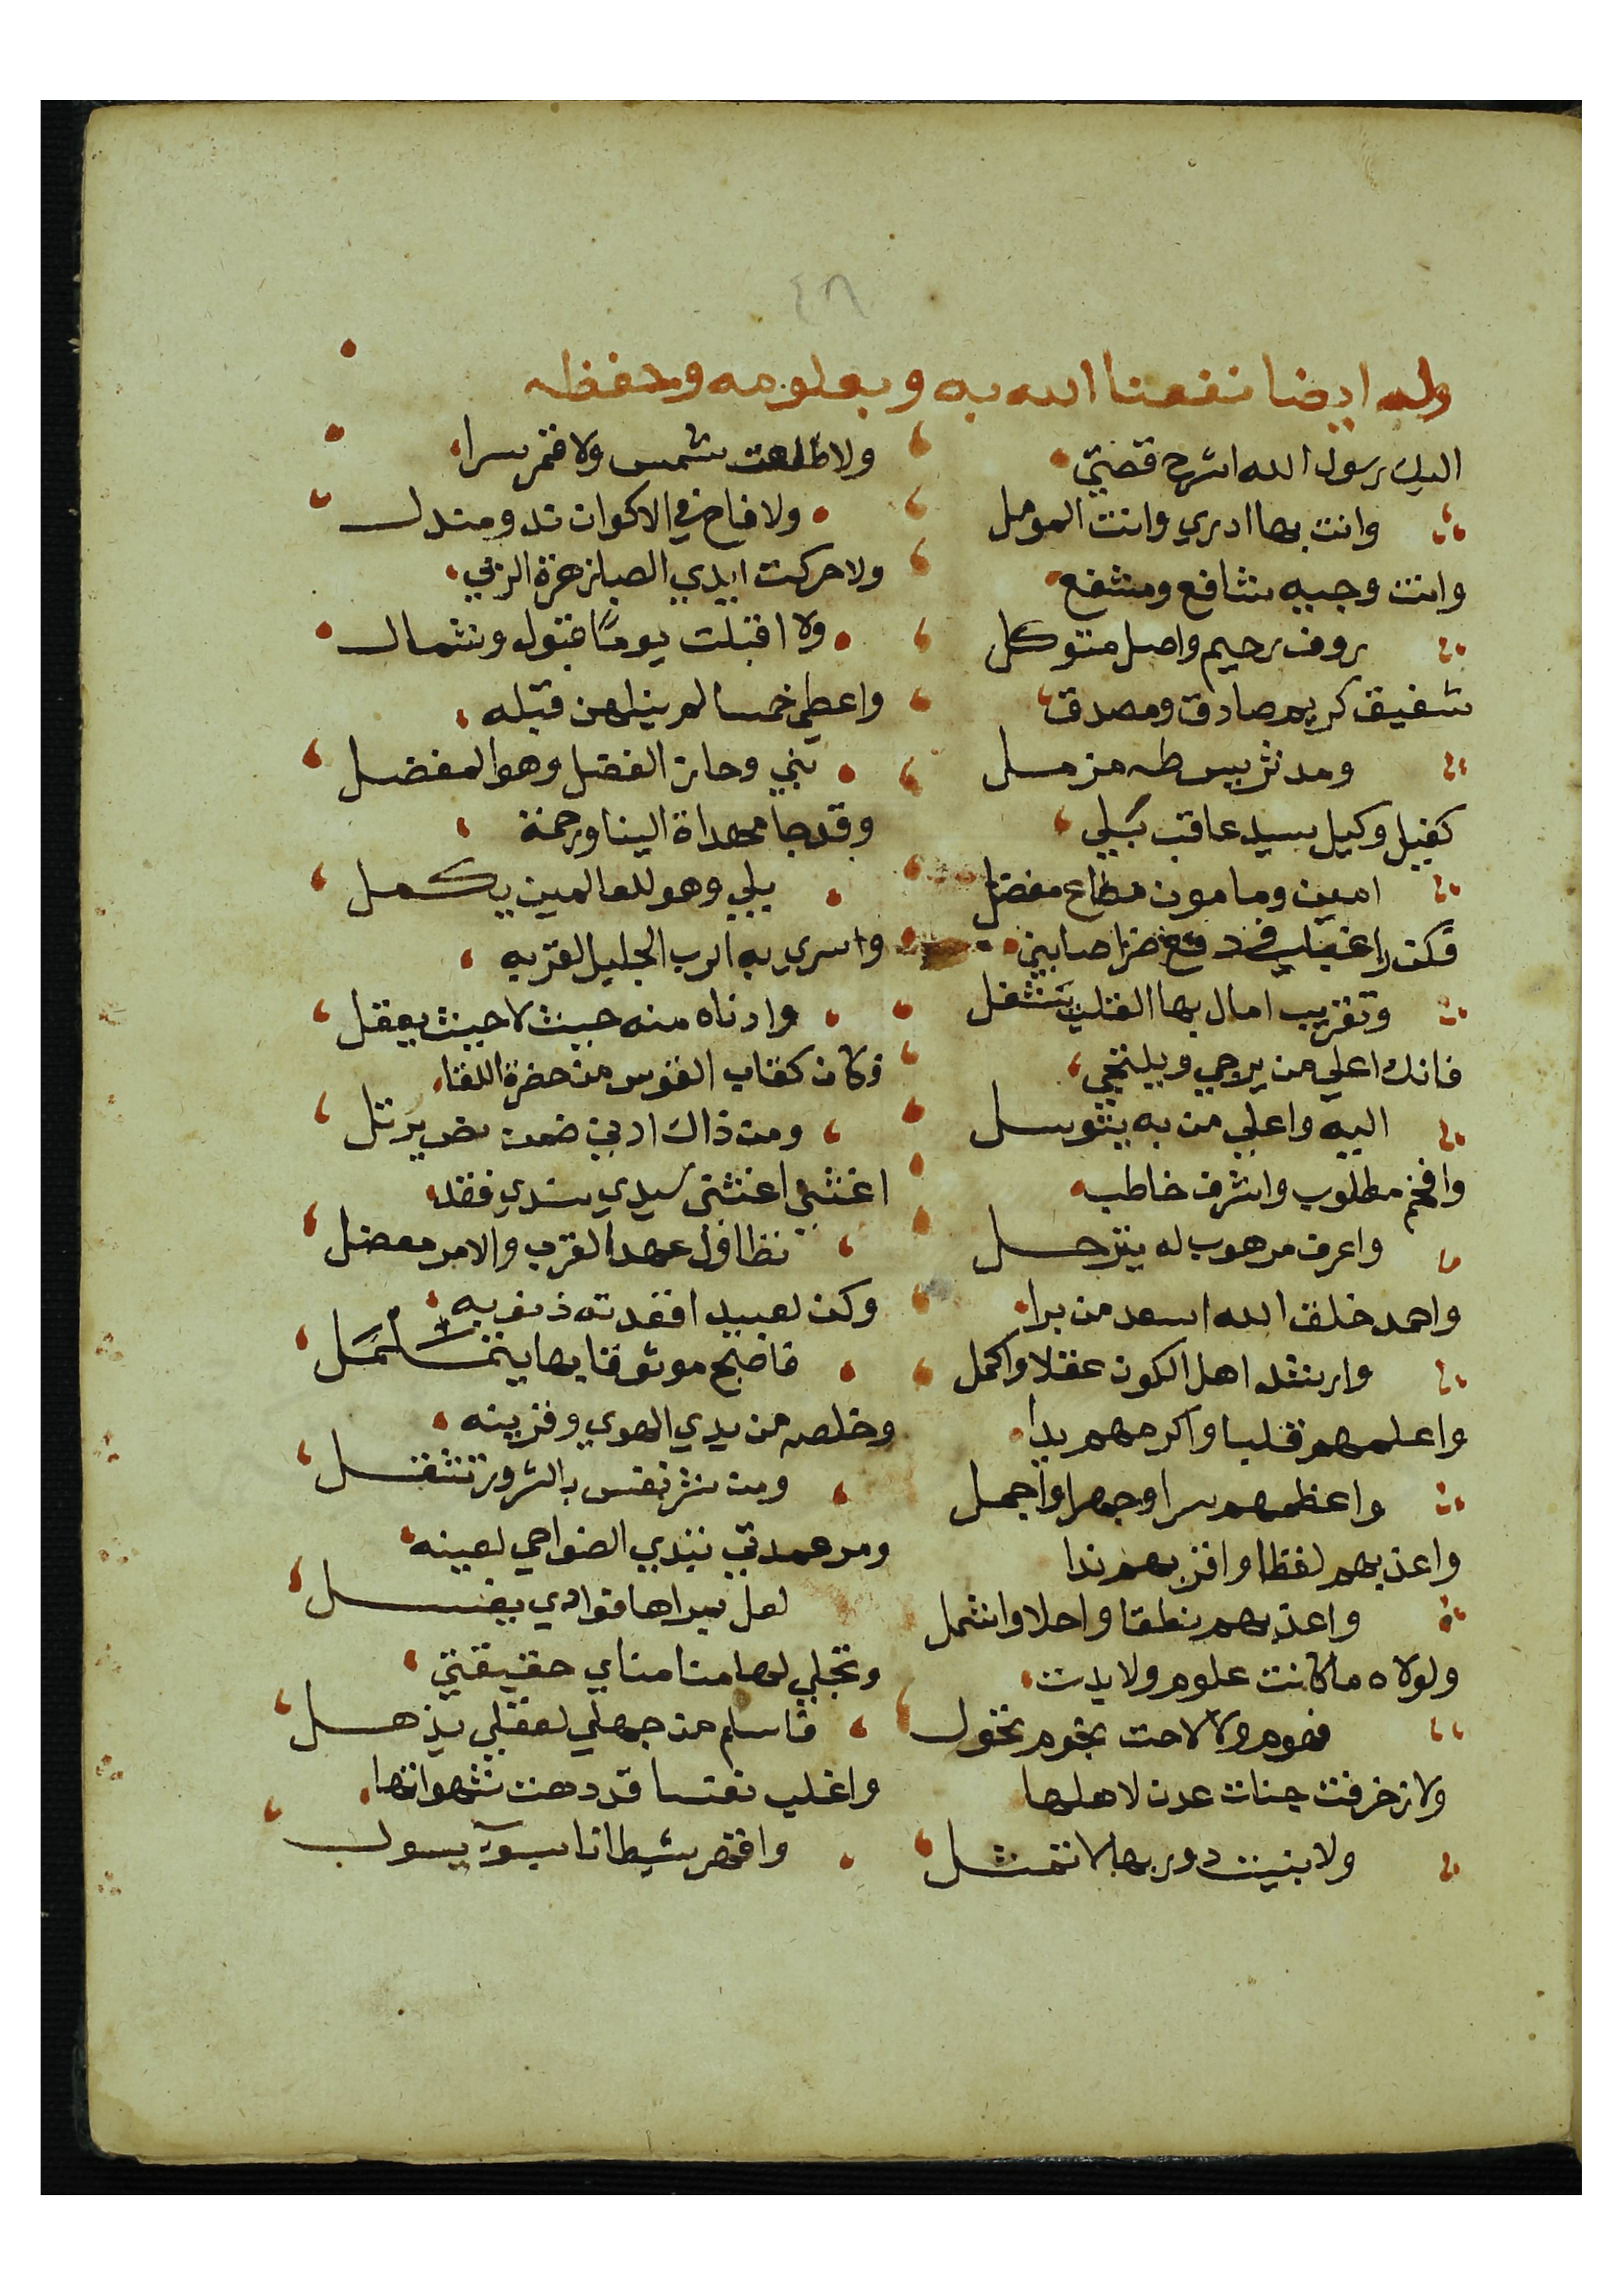 ٤٨
وله ايضا نفعنا الله به وبعلومه وحفظه
اليك رسول الله اشرح قصتي
وانت بها ادري وانت المومل
وانت وجيه شافع ومشفع
روف رحيم واصل متوكل
شفيق كريم صادق ومصدق
ومدثر يس طه مزمل
كفيل وكيل سيد عاقب
امين ومامون مطاع مفضل
فكن في دفع ضر اصابني
وتقريب امال بها القلب يشغل
فانك اعلي من يرجي ويلتجي
اليه واعلي من به يتوسل
وافخم مطلوب واشرف خاطب
واعرف مرهوب له يترحل
واحمد خلق الله اسعد من برا
وارشد اهل الكون عقلا واكمل
واعلمهم قلبا واكرمهم يدا
واعظمهم سرا وجهرا واجمل
واعذبهم لفظا واقربهم ندا
واعذبهم نطقا واحلا واشمل
ولولاه ما كانت علوم ولا بدت
فهوم ولا لاحت نجوم تحول
ولا زخرفت جنات عدن لاهلها
ولا بنيت دور بها لا تمثل
ولا طلعت شمس ولا قمر سرا
ولا فاح في الاكوان ند ومندل
ولا حركت ايدي الصبا زهرة الربي
ولا اقبلت يوما قبول وشمال
واعطي خمسا لم ينلهن قبله
نبي وحاز الفضل وهو المفضل
وقد جا مهداة الينا ورحمة
يلي وهو للعالمين يكمل
واسري به الرب الجليل لقربه
وادناه منه حيث لا حيث يعقل
وكان كقاب القوس من حضرة اللقا
ومن ذاك ادني ضمن نص يرتل
اغثني اغثني سيدي سندي فقد
تطاول عهد القرب والامر معضل
وكن لعبيد اقعدته ذنوبه
فاصبح موثوقا بها يتململ
وخلصه من يدي الهوي وقرينه
ومن شر نفس بالشرور تثقل
ومر عمدتي تبدي الضواحي لعينه
لعل يراها فوادي يغسل
وتجلي لها منا مناي حقيقتي
فاسلم من جهلي لعقلي يذهل
واغلب نفسا قد دهت شهواتها
واقهر شيطانا بسوء يسول